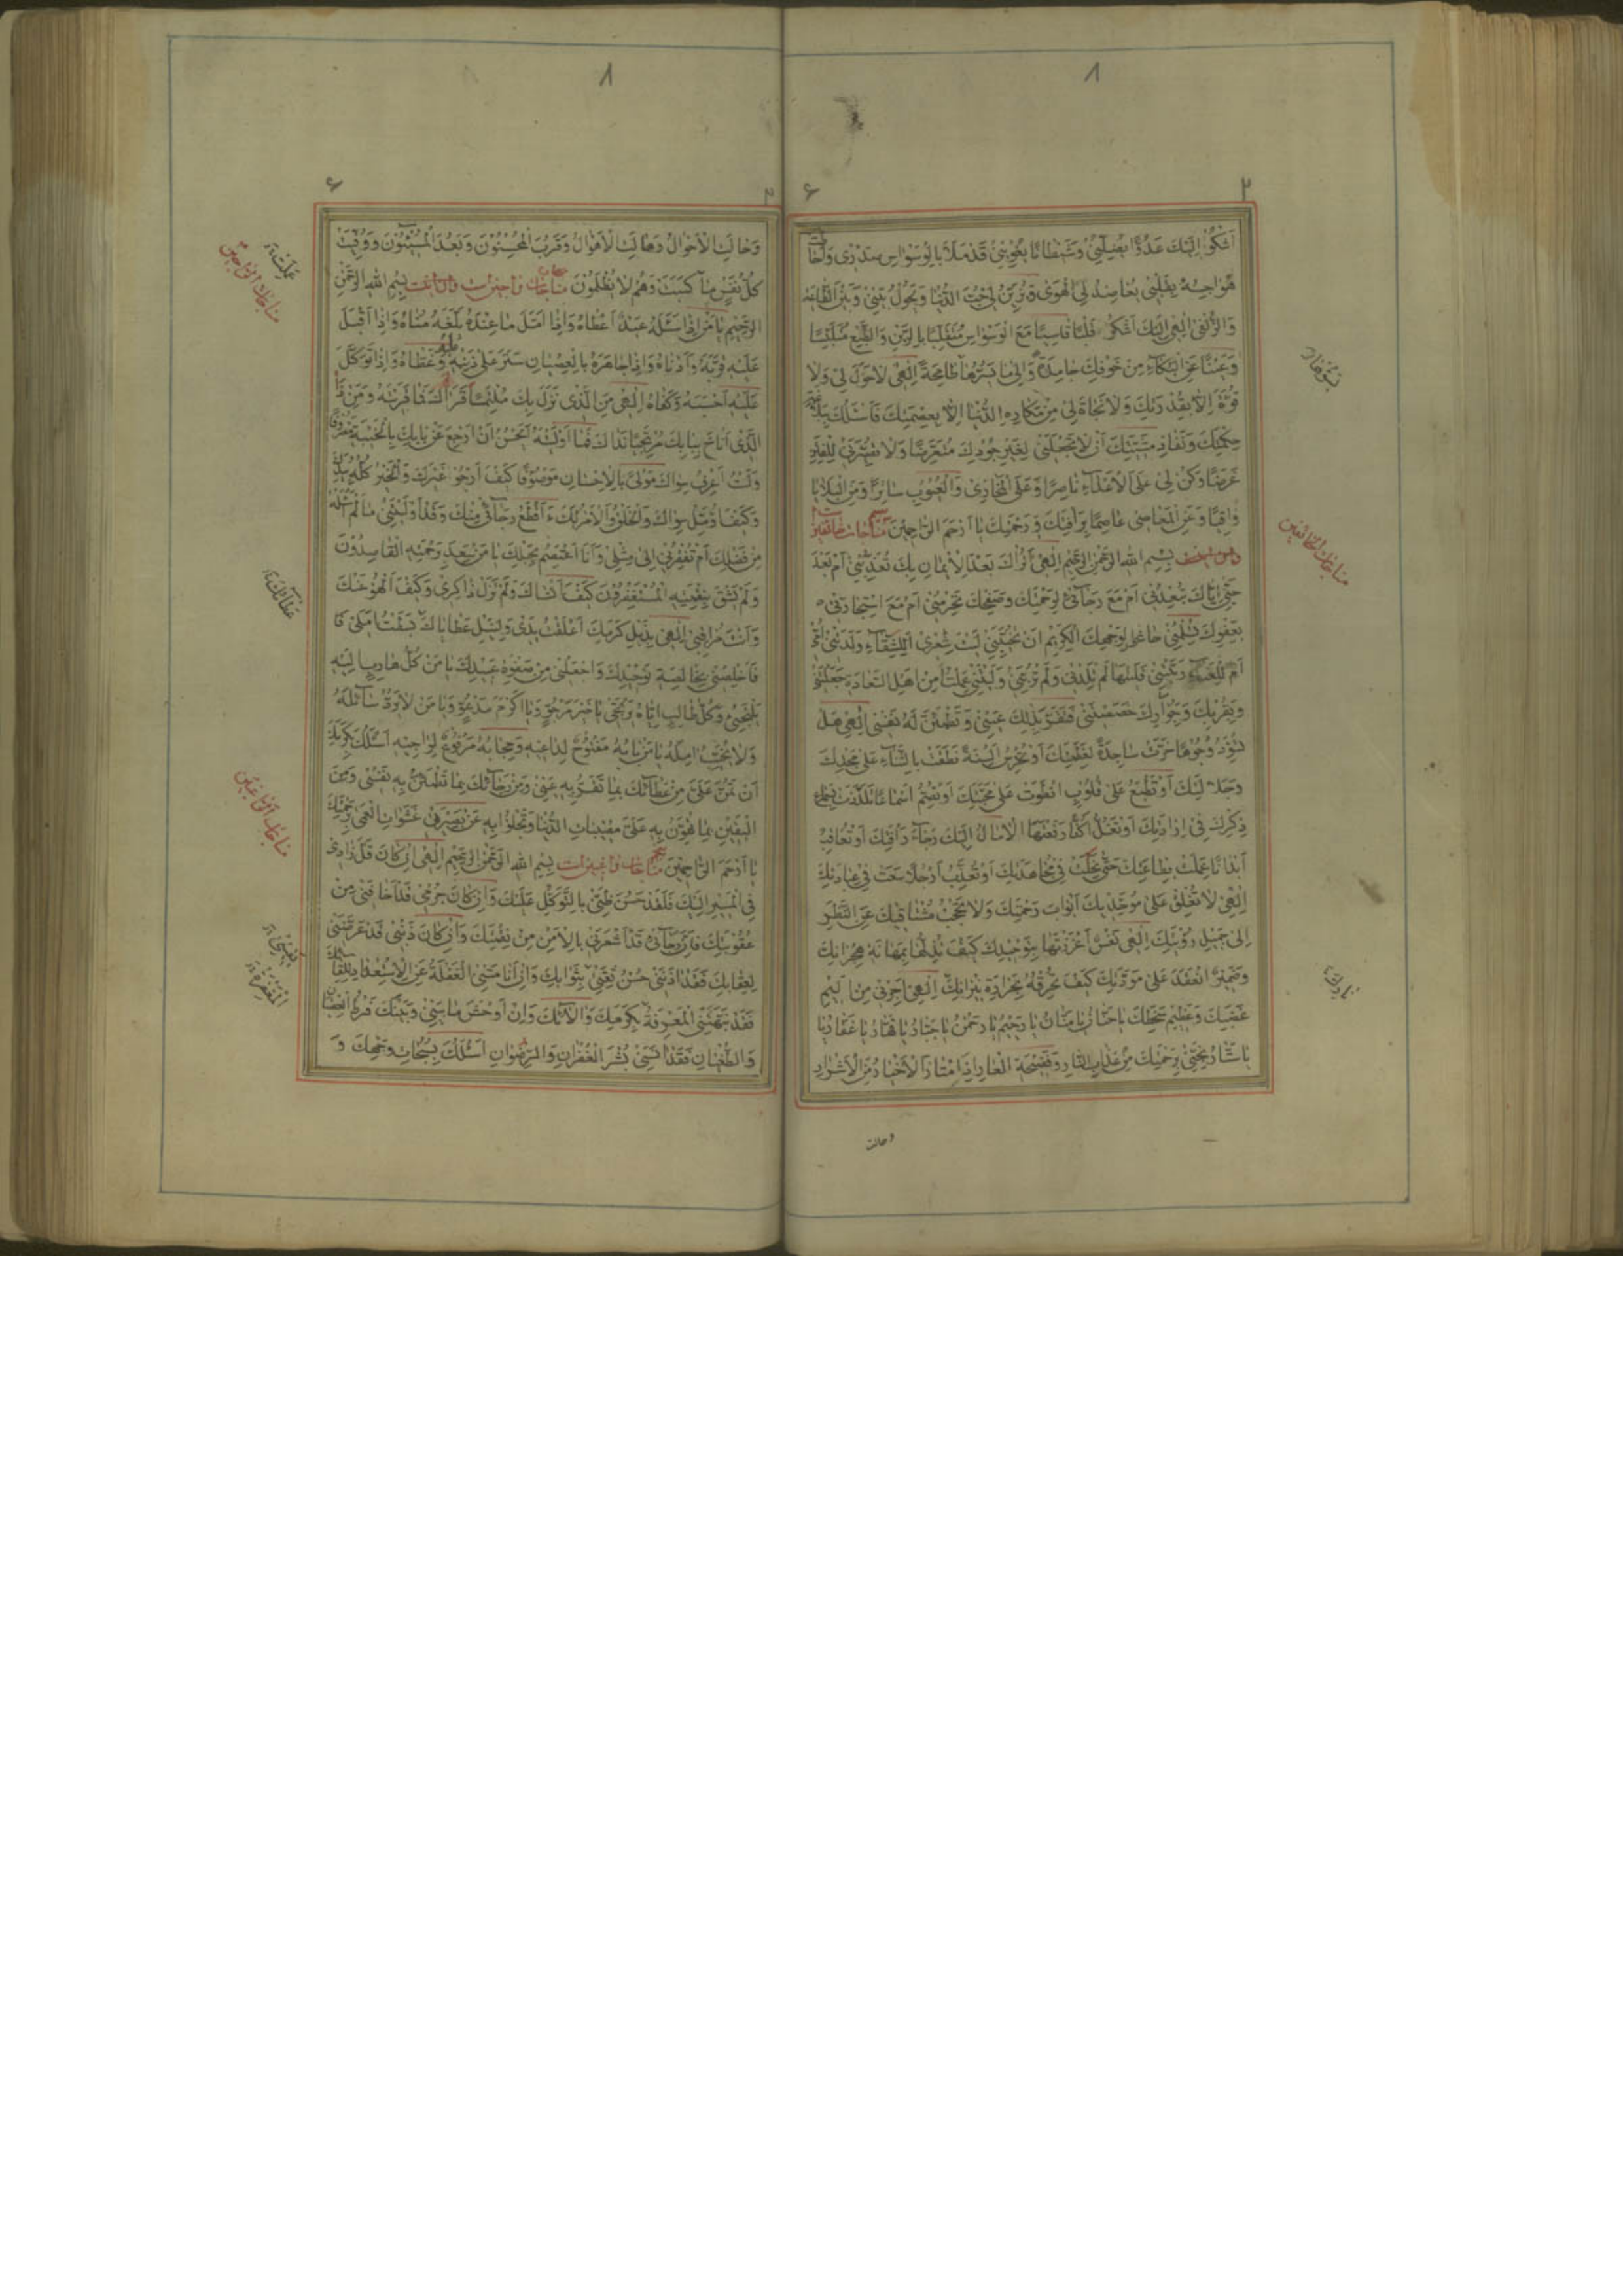 اَشْكُوْ اِلَيْكَ عَدُوًّا يُضِلُّنِيْ وَشَيْطَانًا يُغْوِيْنِيْ قَدْ مَلَأَ بِالْوَسْوَاسِ صَدْرِيْ وَاَحَاطَتْ
هَوَاجِسُهُ بِقَلْبِيْ يُعَاضِدُ لِيَ الْهَوٰى وَيُزَيِّنُ لِيْ حُبَّ الدُّنْيَا وَيَحُوْلُ بَيْنِيْ وَبَيْنَ الطَّاعَةِ
وَالزُّلْفٰى اِلٰهِيْ اِلَيْكَ اَشْكُوْ قَلْبًا قَاسِيًا مَعَ الْوَسْوَاسِ مُتَقَلِّبًا بِالرَّيْنِ وَالطَّبْعِ مُتَلَبِّسًا
وَعَيْنًا عَنِ الْبُكَآءِ مِنْ خَوْفِكَ جَامِدَةً وَاِلٰى مَا تَسُرُّهَا طَامِحَةً اِلٰهِيْ لَاحَوْلَ لِيْ وَلَا
قُوَّةَ اِلَّا بِقُدْرَتِكَ وَلَا نَجَاةَ لِيْ مِنْ مَكَارِهِ الدُّنْيَا اِلَّا بِعِصْمَتِكَ فَاَسْئَلُكَ بِبَلَاغَةِ
حِكْمَتِكَ وَنَفَاذِ مَشِيَّتِكَ اَنْ لَا تَجْعَلَنِيْ لِغَيْرِ جُوْدِكَ مُتَعَرِّضًا وَلَا تُصَيِّرَنِيْ لِلْفِتَنِ
غَرَضًا وَكُنْ لِيْ عَلَى الْاَعْدَآءِ نَاصِرًا وَعَلَى الْمَخَازِيْ وَالْعُيُوْبِ سَاتِرًا وَمِنَ الْبَلَايَا
وَاقِيًا وَعَنِ الْمَعَاصِيْ عَاصِمًا بِرَأْفَتِكَ وَرَحْمَتِكَ يَا اَرْحَمَ الرَّاحِمِيْنَ مناجات خائفين
بِسْمِ اللهِ الرَّحْمٰنِ الرَّحِيْمِ اِلٰهِيْ اَتُرَاكَ بَعْدَ الْاِيْمَانِ بِكَ تُعَذِّبُنِيْ اَمْ بَعْدَ
حُبِّيْ اِيَّاكَ تُبَعِّدُنِيْ اَمْ مَعَ رَجَآئِيْ لِرَحْمَتِكَ وَصَفْحِكَ تَحْرِمُنِيْ اَمْ مَعَ اسْتِجَارَتِيْ
بِعَفْوِكَ تُسْلِمُنِيْ حَاشَا لِوَجْهِكَ الْكَرِيْمِ اَنْ تُخَيِّبَنِيْ لَيْتَ شِعْرِيْ اَلِلشَّقَآءِ وَلَدَتْنِيْ اُمِّيْ
اَمْ لِلْعَنَآءِ رَبَّتْنِيْ فَلَيْتَهَا لَمْ تَلِدْنِيْ وَلَمْ تُرَبِّنِيْ وَلَيْتَنِيْ عَلِمْتُ اَمِنْ اَهْلِ السَّعَادَةِ جَعَلْتَنِيْ
وَبِقُرْبِكَ وَجِوَارِكَ خَصَصْتَنِيْ فَتَقَرَّ بِذٰلِكَ عَيْنِيْ وَتَطْمَئِنَّ لَهُ نَفْسِيْ اِلٰهِيْ هَلْ
تُسَوِّدُ وُجُوْهًا خَرَّتْ سَاجِدَةً لِعَظَمَتِكَ اَوْ تُخْرِسُ اَلْسِنَةً نَطَقَتْ بِالثَّنَآءِ عَلٰى مَجْدِكَ
وَجَلَالَتِكَ اَوْ تَطْبَعُ عَلٰى قُلُوْبٍ انْطَوَتْ عَلٰى مَحَبَّتِكَ اَوْ تُصِمُّ اَسْمَاعًا تَلَذَّذَتْ بِسَمَاعِ
ذِكْرِكَ فِيْ اِرَادَتِكَ اَوْ تَغُلُّ اَكُفًّا رَفَعَتْهَا الْاٰمَالُ اِلَيْكَ رَجَآءَ رَأْفَتِكَ اَوْ تُعَاقِبُ
اَبْدَانًا عَمِلَتْ بِطَاعَتِكَ حَتّٰى نَحِلَتْ فِيْ مُجَاهَدَتِكَ اَوْ تُعَذِّبُ اَرْجُلًا سَعَتْ فِيْ عِبَادَتِكَ
اِلٰهِيْ لَا تُغْلِقْ عَلٰى مُوَحِّدِيْكَ اَبْوَابَ رَحْمَتِكَ وَلَا تَحْجُبْ مُشْتَاقِيْكَ عَنِ النَّظَرِ
اِلٰى جَمِيْلِ رُؤْيَتِكَ اِلٰهِيْ نَفْسٌ اَعْزَزْتَهَا بِتَوْحِيْدِكَ كَيْفَ تُذِلُّهَا بِمَهَانَةِ هِجْرَانِكَ
وَضَمِيْرٌ انْعَقَدَ عَلٰى مَوَدَّتِكَ كَيْفَ تُحْرِقُهُ بِحَرَارَةِ نِيْرَانِكَ اِلٰهِيْ اَجِرْنِيْ مِنْ اَلِيْمِ
غَضَبِكَ وَعَظِيْمِ سَخَطِكَ يَا حَنَّانُ يَا مَنَّانُ يَا رَحِيْمُ يَا رَحْمٰنُ يَا جَبَّارُ يَا قَهَّارُ يَا غَفَّارُ يَا
يَا سَتَّارُ نَجِّنِيْ بِرَحْمَتِكَ مِنْ عَذَابِ النَّارِ وَفَضِيْحَةِ الْعَارِ اِذَا امْتَازَ الْاَخْيَارُ مِنَ الْاَشْرَارِ
وحالت
مناجات الخائفين
وَحَالَتِ الْاَحْوَالُ وَهَالَتِ الْاَهْوَالُ وَقَرُبَ الْمُحْسِنُوْنَ وَبَعُدَ الْمُسِيْئُوْنَ وَوُفِّيَتْ
كُلُّ نَفْسٍ مَا كَسَبَتْ وَهُمْ لَا يُظْلَمُوْنَ مناجات راجين است بِسْمِ اللهِ الرَّحْمٰنِ
الرَّحِيْمِ يَا مَنْ اِذَا سَئَلَهُ عَبْدٌ اَعْطَاهُ وَاِذَا اَمَّلَ مَا عِنْدَهُ بَلَّغَهُ مُنَاهُ وَاِذَا اَقْبَلَ
عَلَيْهِ قَرَّبَهُ وَاَدْنَاهُ وَاِذَا جَاهَرَهُ بِالْعِصْيَانِ سَتَرَ عَلٰى ذَنْبِهِ وَغَطَّاهُ وَاِذَا تَوَكَّلَ
عَلَيْهِ اَحْسَبَهُ وَكَفَاهُ اِلٰهِيْ مَنِ الَّذِيْ نَزَلَ بِكَ مُلْتَمِسًا قِرَاكَ فَمَا قَرَيْتَهُ وَمَنِ
الَّذِيْ اَنَاخَ بِبَابِكَ مُرْتَجِيًا نَدَاكَ فَمَا اَوْلَيْتَهُ اَيَحْسُنُ اَنْ اَرْجِعَ عَنْ بَابِكَ بِالْخَيْبَةِ مَصْرُوْفًا
وَلَسْتُ اَعْرِفُ سِوَاكَ مَوْلًى بِالْاِحْسَانِ مَوْصُوْفًا كَيْفَ اَرْجُوْ غَيْرَكَ وَالْخَيْرُ كُلُّهُ بِيَدِكَ
وَكَيْفَ اُؤَمِّلُ سِوَاكَ وَالْخَلْقُ وَالْاَمْرُ لَكَ ءَاَقْطَعُ رَجَآئِيْ مِنْكَ وَقَدْ اَوْلَيْتَنِيْ مَا لَمْ اَسْئَلْهُ
مِنْ فَضْلِكَ اَمْ تُفْقِرُنِيْ اِلٰى مِثْلِيْ وَاَنَا اَعْتَصِمُ بِحَبْلِكَ يَا مَنْ سَعِدَ بِرَحْمَتِهِ الْقَاصِدُوْنَ
وَلَمْ يَشْقَ بِنِقْمَتِهِ الْمُسْتَغْفِرُوْنَ كَيْفَ اَنْسَاكَ وَلَمْ تَزَلْ ذَاكِرِيْ وَكَيْفَ اَلْهُوْ عَنْكَ
وَاَنْتَ مُرَاقِبِيْ اِلٰهِيْ بِذَيْلِ كَرَمِكَ اَعْلَقْتُ يَدِيْ وَلِنَيْلِ عَطَايَاكَ بَسَطْتُ اَمَلِيْ فَا
فَاَخْلِصْنِيْ بِخَالِصَةِ تَوْحِيْدِكَ وَاجْعَلْنِيْ مِنْ صَفْوَةِ عَبِيْدِكَ يَا مَنْ كُلُّ هَارِبٍ اِلَيْهِ
يَلْتَجِئُ وَكُلُّ طَالِبٍ اِيَّاهُ يَرْتَجِيْ يَا خَيْرَ مَرْجُوٍّ وَيَا اَكْرَمَ مَدْعُوٍّ وَيَا مَنْ لَا يَرُدُّ سَآئِلَهُ
وَلَا يُخَيِّبُ اٰمِلَهُ يَا مَنْ بَابُهُ مَفْتُوْحٌ لِدَاعِيْهِ وَحِجَابُهُ مَرْفُوْعٌ لِرَاجِيْهِ اَسْئَلُكَ بِكَرَمِكَ
اَنْ تَمُنَّ عَلَيَّ مِنْ عَطَآئِكَ بِمَا تَقَرُّ بِهِ عَيْنِيْ وَمِنْ رَجَآئِكَ بِمَا تَطْمَئِنُّ بِهِ نَفْسِيْ وَمِنَ
الْيَقِيْنِ بِمَا تُهَوِّنُ بِهِ عَلَيَّ مُصِيْبَاتِ الدُّنْيَا وَتَجْلُوْ بِهِ عَنْ بَصِيْرَتِيْ غَشَوَاتِ الْعَمٰى بِرَحْمَتِكَ
يَا اَرْحَمَ الرَّاحِمِيْنَ مناجات راغبين است بِسْمِ اللهِ الرَّحْمٰنِ الرَّحِيْمِ اِلٰهِيْ اِنْ كَانَ قَلَّ زَادِيْ
فِي الْمَسِيْرِ اِلَيْكَ فَلَقَدْ حَسُنَ ظَنِّيْ بِالتَّوَكُّلِ عَلَيْكَ وَاِنْ كَانَ جُرْمِيْ قَدْ اَخَافَنِيْ مِنْ
عُقُوْبَتِكَ فَاِنَّ رَجَآئِيْ قَدْ اَشْعَرَنِيْ بِالْاَمْنِ مِنْ نِقْمَتِكَ وَاِنْ كَانَ ذَنْبِيْ قَدْ عَرَّضَنِيْ
لِعِقَابِكَ فَقَدْ اٰذَنَنِيْ حُسْنُ ثِقَتِيْ بِثَوَابِكَ وَاِنْ اَنَامَتْنِيْ الْغَفْلَةُ عَنِ الْاِسْتِعْدَادِ لِلِقَآئِكَ
فَقَدْ نَبَّهَتْنِيْ الْمَعْرِفَةُ بِكَرَمِكَ وَاٰلَآئِكَ وَاِنْ اَوْحَشَ مَا بَيْنِيْ وَبَيْنَكَ فَرْطُ الْعِصْيَانِ
وَالطُّغْيَانِ فَقَدْ اٰنَسَنِيْ بُشْرَى الْغُفْرَانِ وَالرِّضْوَانِ اَسْئَلُكَ بِسُبُحَاتِ وَجْهِكَ وَ
مناجات الراجين
عطائك
مناجات الراغبين
المغفرة